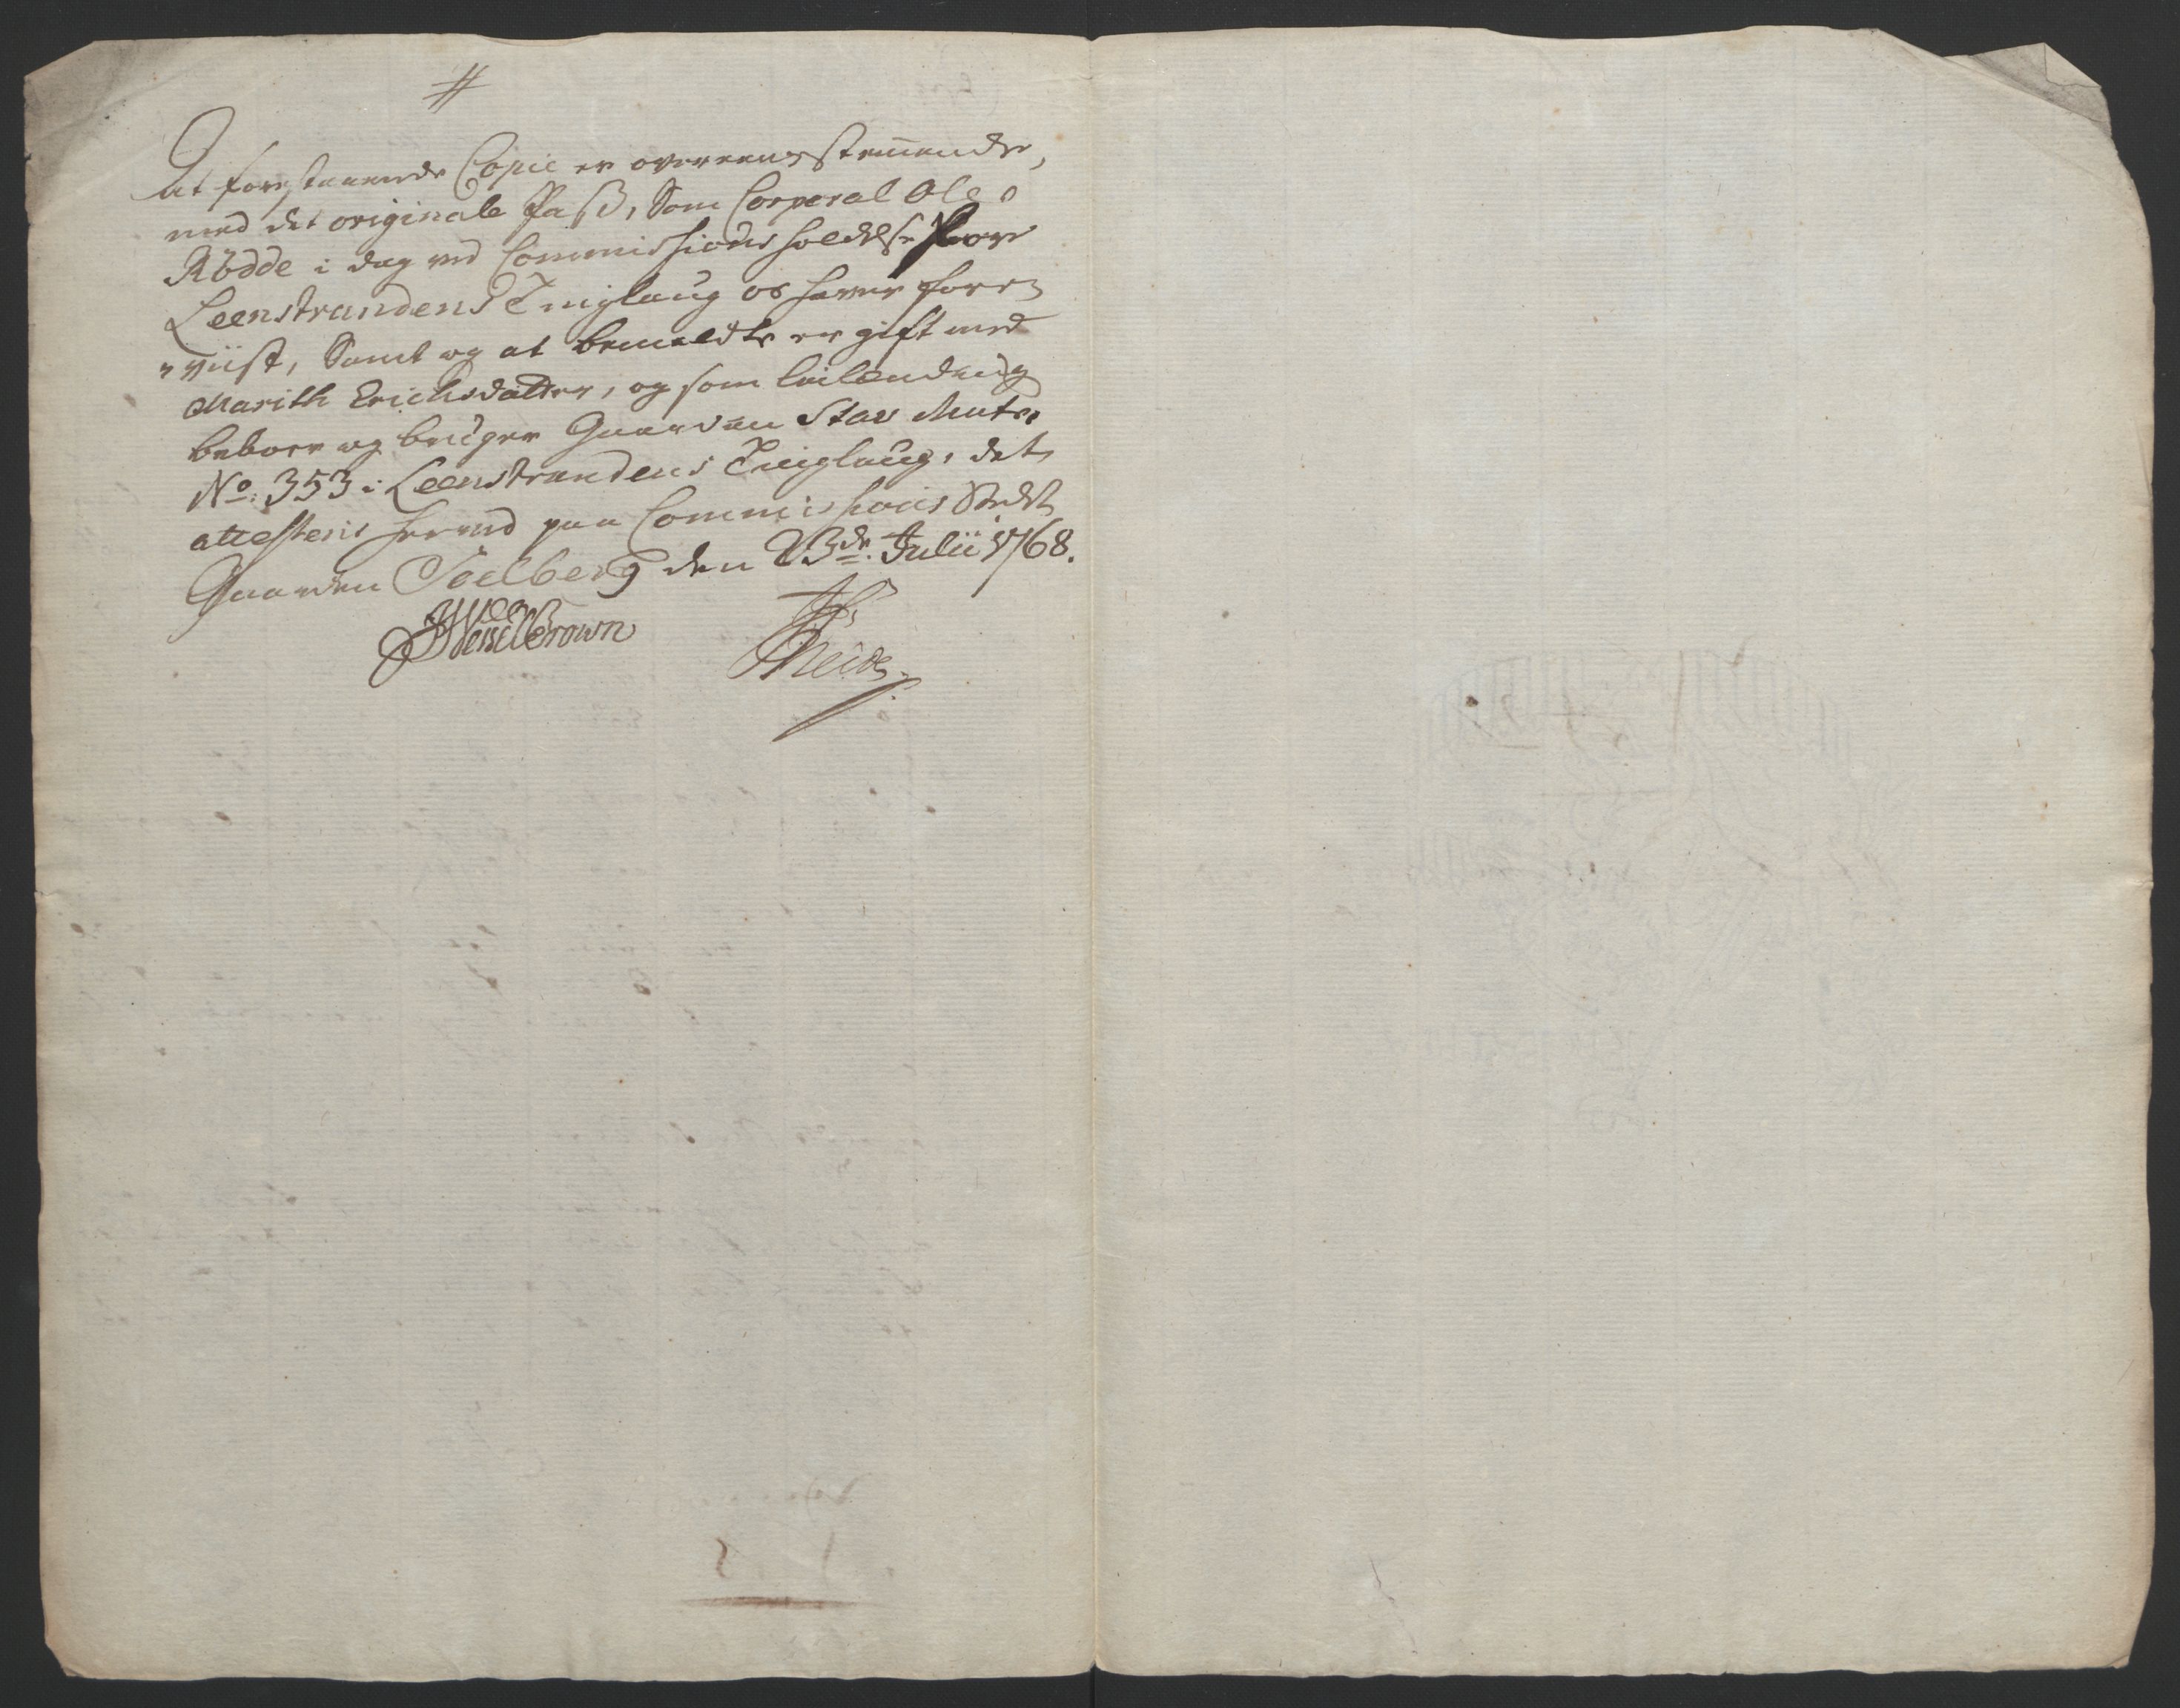 #
At forestaaende Copie er overeensstemmende,
med det originale Pass, Som Corporal Ole
Rödde i dag ved Commissions holdelse for
Leenstrandens Tinglaug os haver fore-
viist, Samt og at bemeldte er gift med
Marith Erichsdatter, og som leilænding
beboer og bruger Gaarden Stav Matr.
No: 353 i Leenstrandens Tinglaug, det
attesteris herved paa Commissions Stedet
Gaarden Soelberg den 23de Julii 1768.
Wesselbrown